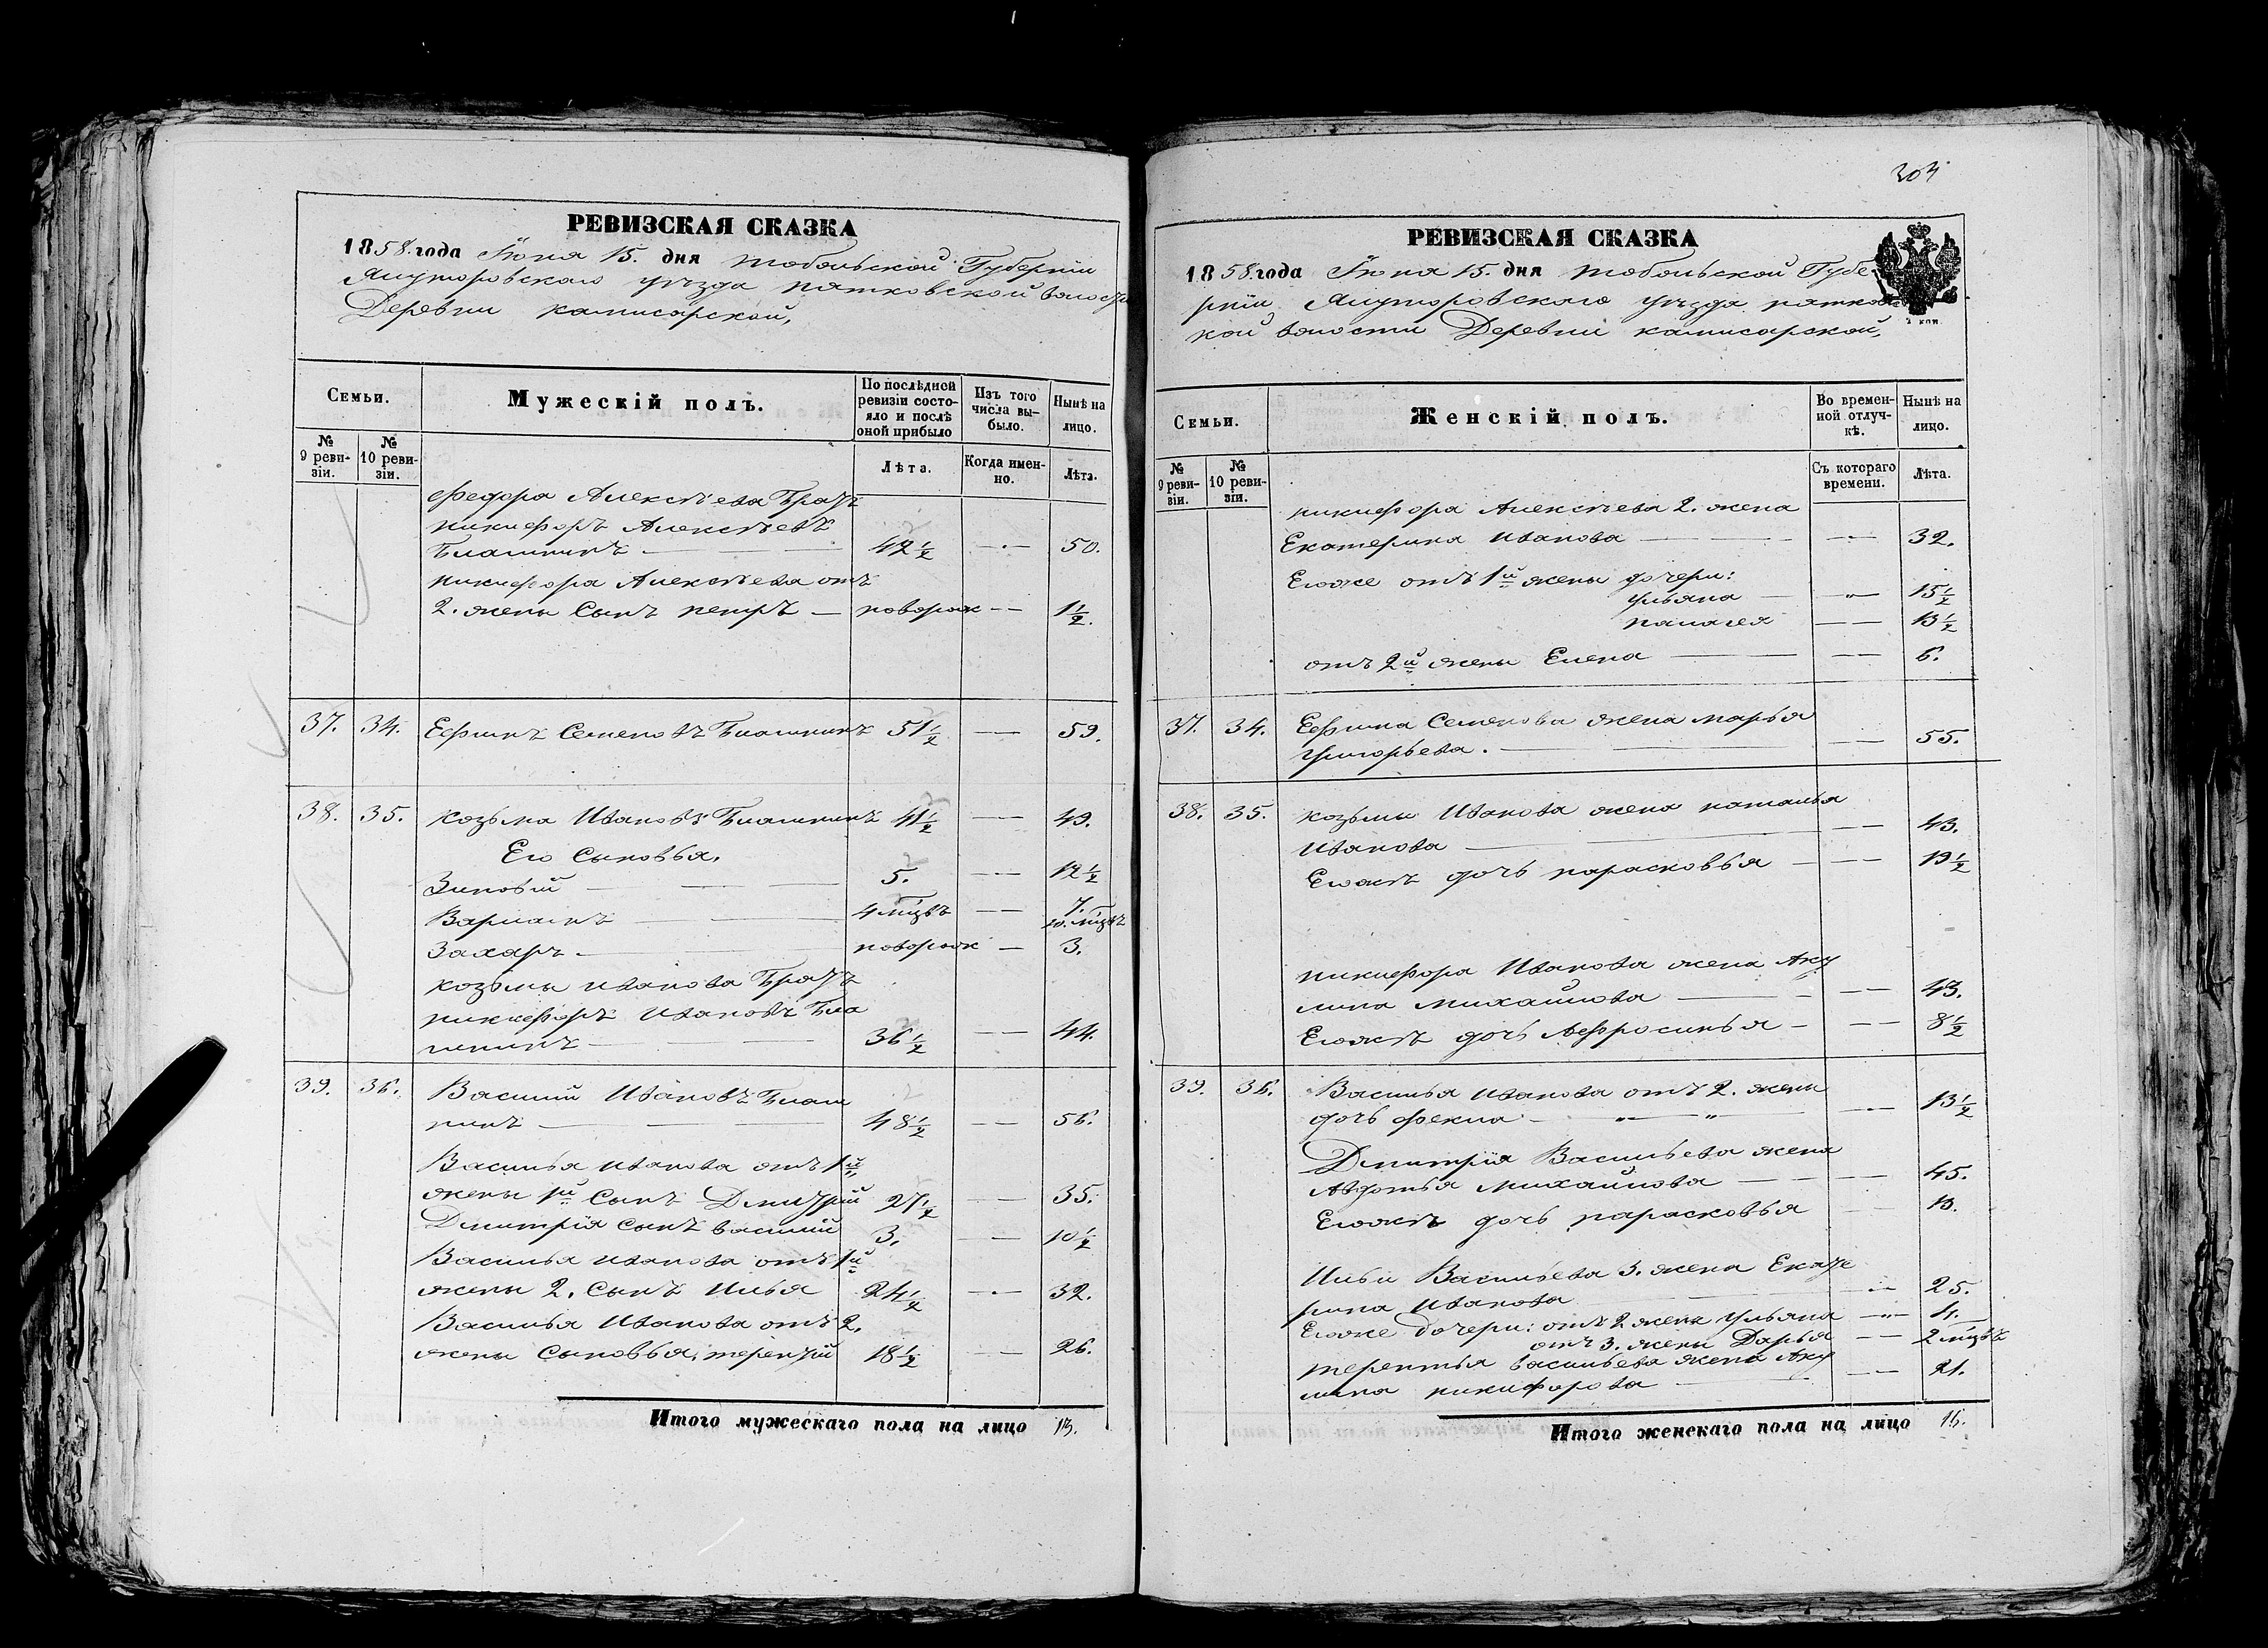 303
РЕВИЗСКАЯ СКАЗКА
1858 года Іюня 15. дня тобольской Губерніи
Ялуторовскаго уѣзда пятковской волости
Деревни камисарской,
Семьи.
Мужескій полъ.
По послѣдней ревизіи состояло и послѣ оной прибыло
Изъ того числа выбыло.
Нынѣ на лицо.
№ 9 ревизіи.
№ 10 ревизіи.
Лѣта.
Когда именно.
Лѣта.
Федора Алексѣева Братъ
никифоръ Алексѣевъ
42 1/2 — 50.
никифора Алексѣева отъ
2. жены Сынъ петръ — новорож — 1 1/2.
37. 34. Ефимъ Семеновъ 51 1/2 — 59.
38. 35. козьма Ивановъ 41 1/2 — 49.
Его Сыновья,
Зиновій — 5. — 12 1/2
4 мѣць — 7. 10. мѣць
Захаръ — новорож — 3.
козьмы иванова Братъ
никифоръ Ивановъ
36 1/2 — 44.
39. 36. Василій Ивановъ
48 1/2 — 56.
Василья иванова отъ 1й
жены 1й Сынъ Дмитрій 27 1/2 — 35.
Дмитрія сынъ василій 3. — 10 1/2
Василья иванова отъ 1й
жены 2. Сынъ Илья 24 1/2 — 32.
Василья Иванова отъ 2.
жены Сыновья, терентій 18 1/2 — 26.
Итого мужескаго пола на лицо 13.
РЕВИЗСКАЯ СКАЗКА
1858 года Іюня 15. дня тобольской Губе-
рніи Ялуторовскаго уѣзда пятковс
кой волости Деревни камисарской,
Семьи.
Женскій полъ.
Во временной отлучкѣ.
Нынѣ на лицо.
№ 9 ревизіи.
№ 10 ревизіи.
Съ котораго времени.
Лѣта.
никифора Алексѣева 2. жена
Екатерина Иванова — 32.
Егоже отъ 1й жены дочери:
ульяна — 15 1/2
палагея — 13 1/2
отъ 2й жены Елена — 6.
37. 34. Ефима Семенова жена марья
григорьева. — 55.
38. 35. козьмы Иванова жена наталья
Иванова — 43.
Егожъ дочь парасковья — 19 1/2
никифора Иванова жена Аку
лина михайлова — 43.
Егожъ дочь Аефросинья — 8 1/2
39. 36. Василья иванова отъ 2. жены
дочь фекла — 13 1/2
Дмитрія Васильева жена
Авдотья михайлова — 45.
Егожъ дочь парасковья 13.
Ильи Васильева 3. жена Екате
рина Иванова — 25.
Егоже дочери: отъ 2 жены ульяна — 4.
отъ 3. жены Дарья — 2 мѣць
терентья васильева жена Аку
лина никифорова — 21.
Итого женскаго пола на лицо 16.